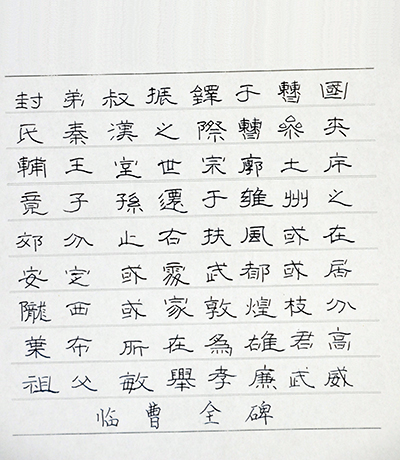 封弟叔振鐸于曹國
氏秦漢之際曹參夾
輔王室世宗廓土斥
竟子孫遷于雍州之
郊分止右扶風或在
安定或處武都或居
隴西或家敦煌枝分
葉布所在為雄君高
祖父敏舉孝廉武威
临曹全碑